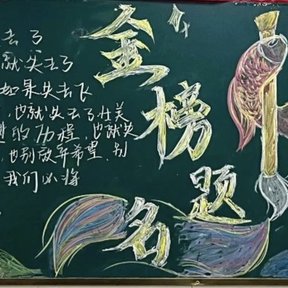 金榜题名
去了
就失去了
如果失去飞
也就失去了壮美
的力量,也就失
也别放弃希望,别
我们必将